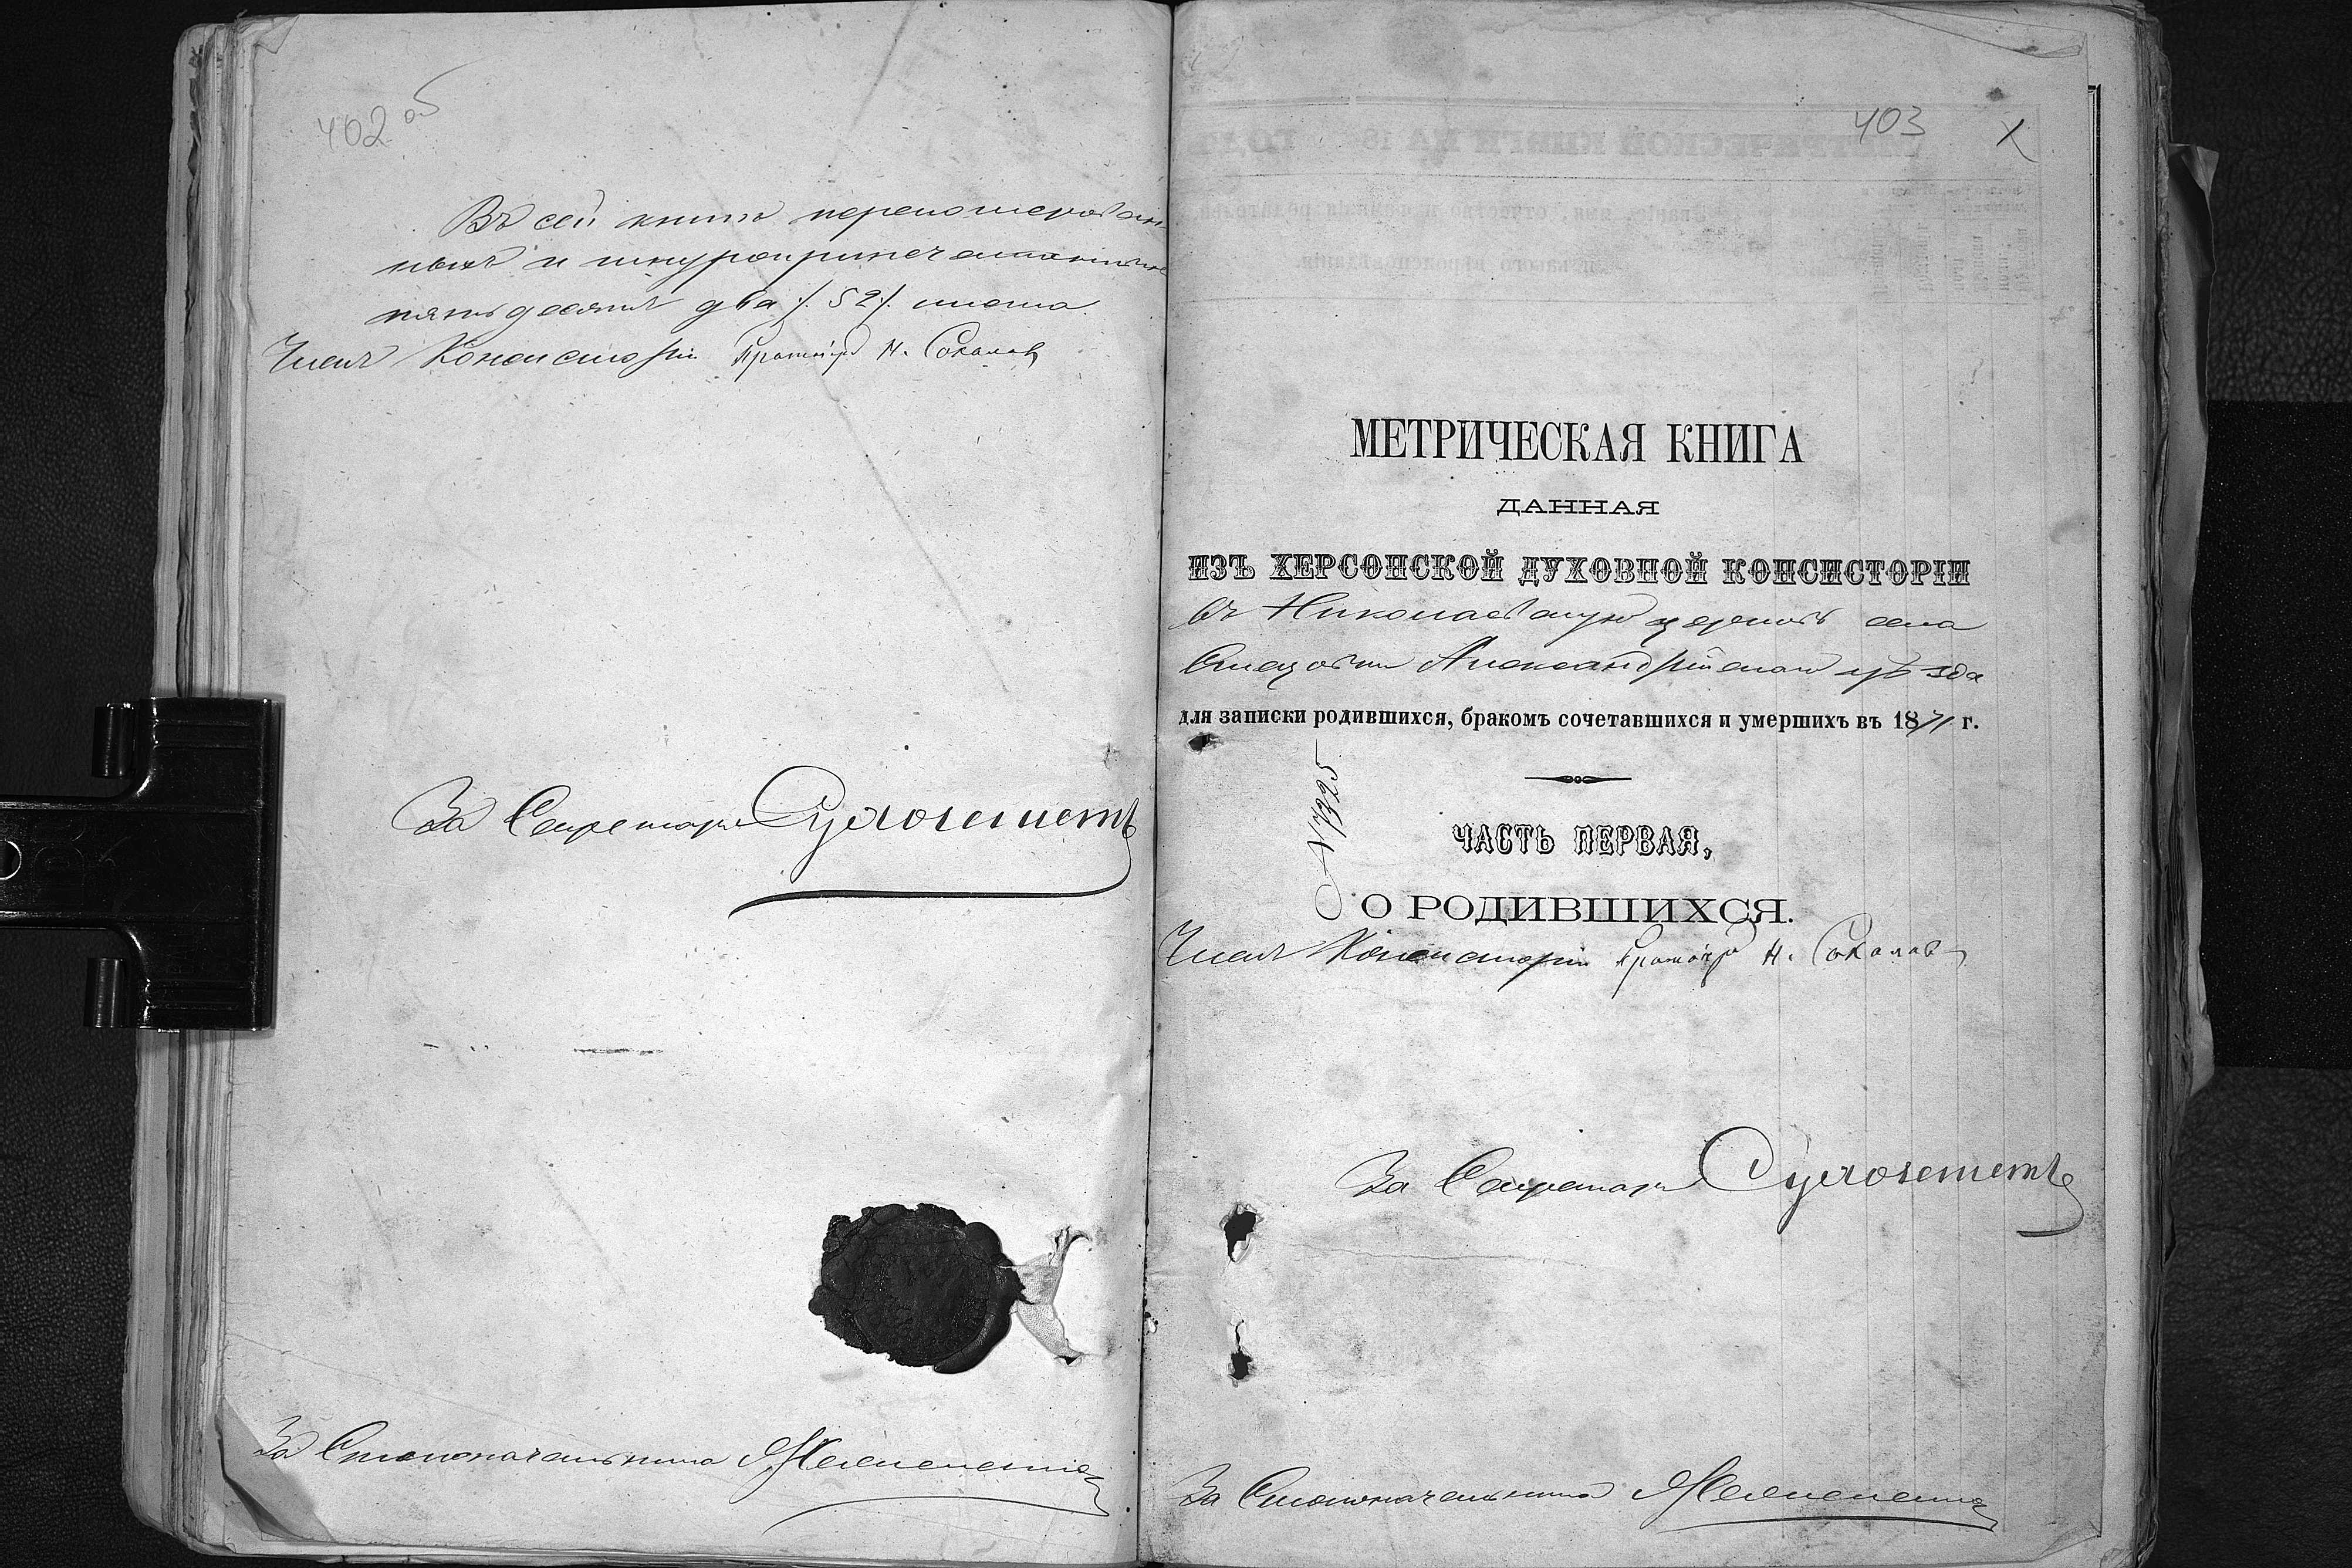 402 об
Въ сей книгѣ перенумерован-
ныхъ и шнуроприпечатанныхъ
пятьдесятъ два /:52:/ листа.
Членъ Консисторіи Протоіер Н. Соколов
За Секретаря
За Столоначальника
403
МЕТРИЧЕСКАЯ КНИГА
ДАННАЯ
ИЗЪ ХЕРСОНСКОЙ ДУХОВНОЙ КОНСИСТОРІИ
въ Николаевскую церковь села
Александрійскаго уѣзда
для записки родившихся, бракомъ сочетавшихся и умершихъ въ 1871 г.
№ 7325
ЧАСТЬ ПЕРВАЯ,
О РОДИВШИХСЯ.
Членъ Консисторіи Протоіер Н. Соколов
За Секретаря
За Столоначальника